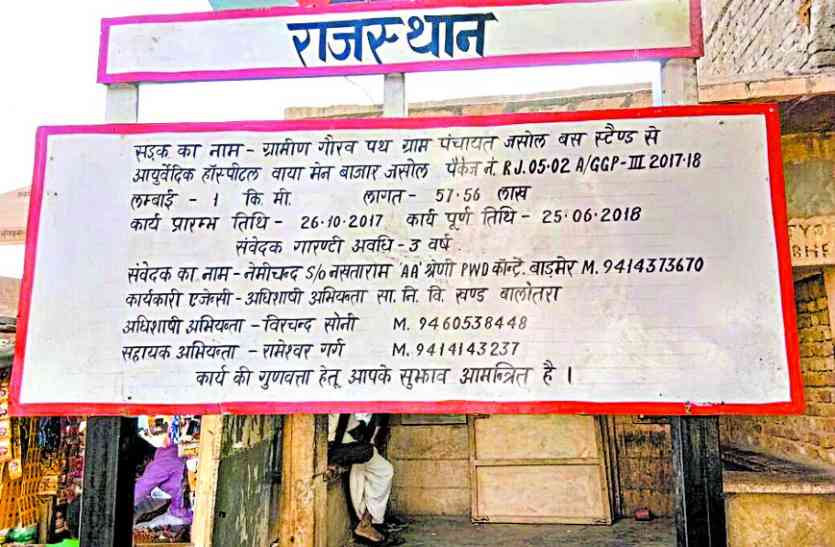 राजस्थान
सड़क का नाम - ग्रामीण गौरव पथ ग्राम पंचायत जसोल बस स्टैण्ड से
आयुर्वेदिक हॉस्पीटल वाया मेन बाजार जसोल पैकेज नं. RJ.05-02 A/GGP-III 2017-18
लम्बाई - 1 कि. मी. लागत - 57.56 लाख
कार्य प्रारम्भ तिथि - 26.10.2017 कार्य पूर्ण तिथि - 25.06.2018
संवेदक गारण्टी अवधि - 3 वर्ष.
संवेदक का नाम - नेमीचन्द S/o नरसताराम 'AA' श्रेणी PWD कॉन्ट्रे. बाड़मेर M. 9414373670
कार्यकारी एजेन्सी - अधिशाषी अभियन्ता सा. नि. वि. खण्ड बालोतरा
अधिशाषी अभियन्ता - विरचन्द सोनी M. 9460538448
सहायक अभियन्ता - रामेश्वर गर्ग M. 9414143237
कार्य की गुणवत्ता हेतू आपके सुझाव आमन्त्रित है ।